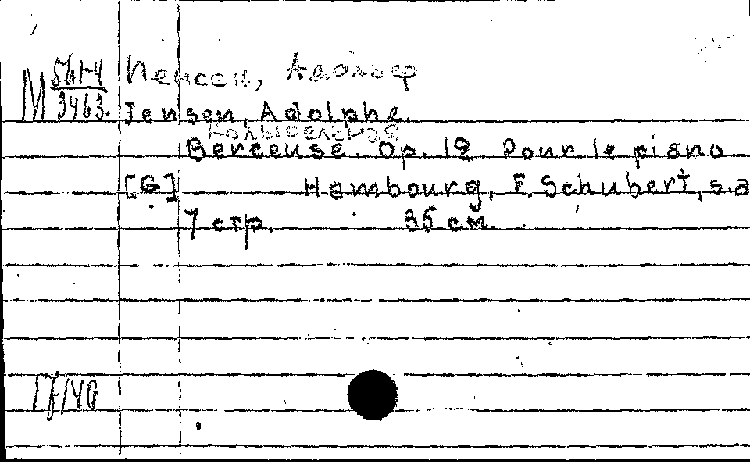 М 561-4/3463. Иенсен, Адольф
Jensen, Adolphe.
Колыбельная
Berceuse. Op. 12 Pour le piano
[G] Hambourg, F. Schubert, s.a
7 стр. 35 см.